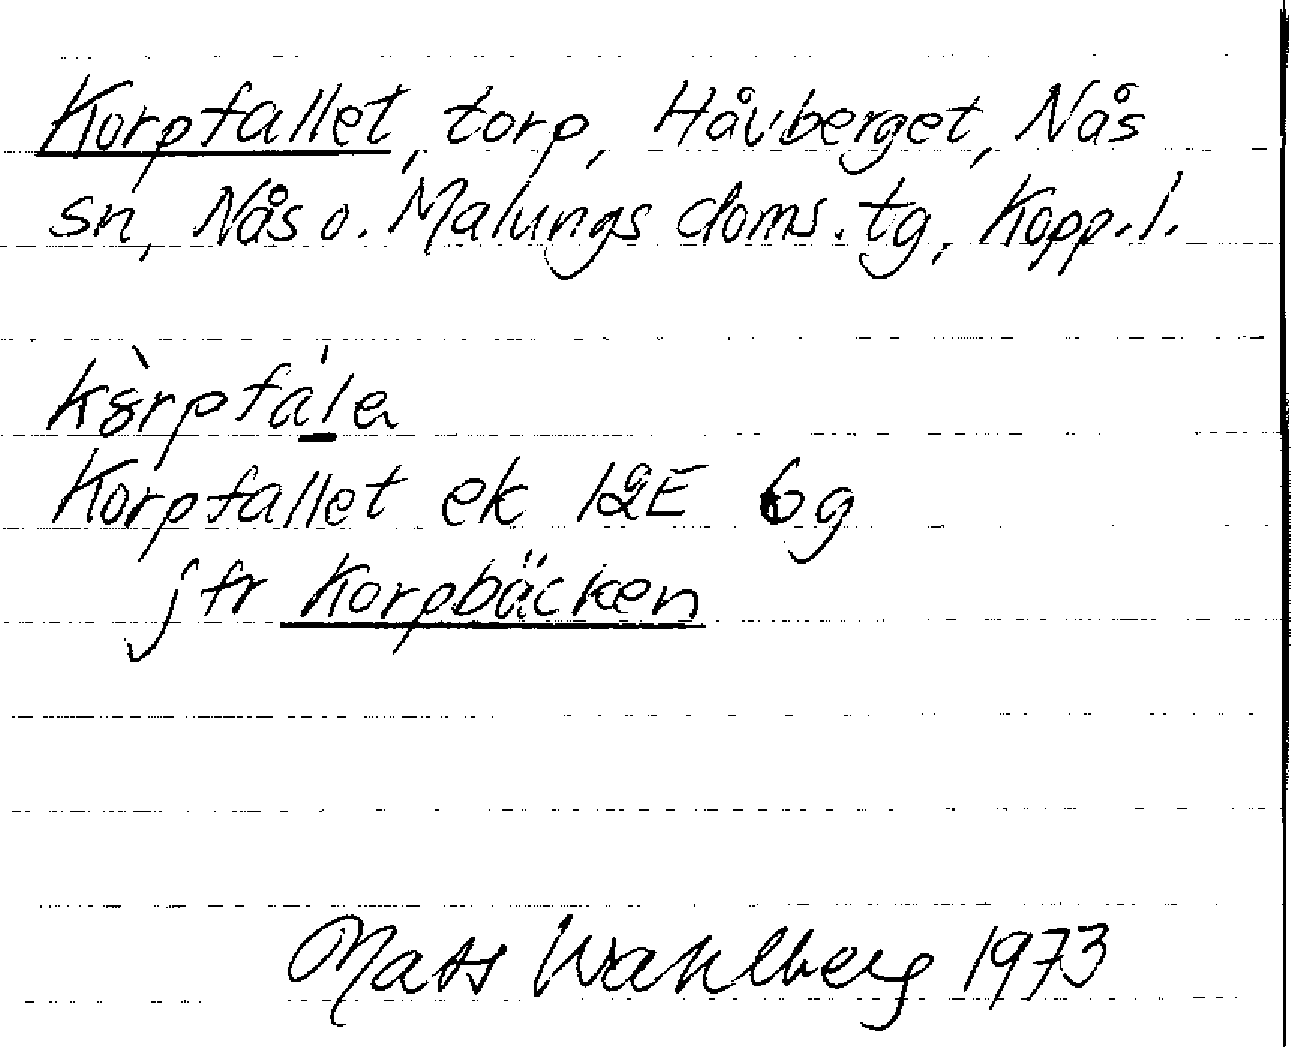 Korpfallet, torp, Håvberget, Nås
sn, Nås o. Malungs doms. tg, Kopp. l.
kòrpfáḷa
Korpfallet ek 12E 6g
jfr Korpbäcken
Mats Wahlberg 1973